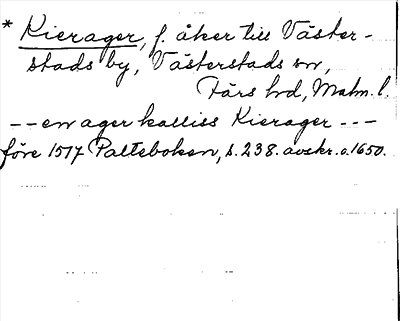 * Kierager, f. åker till Väster-
stads by, Västerstads sn,
Färs hd, Malm. l.
-- en ager kalliss Kierager ---
före 1517 Palteboken, s. 238. avskr. o. 1650.